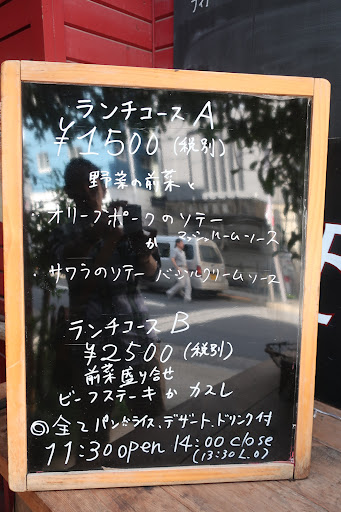 ランチコース A
¥1500 (税別)
野菜の前菜と
・オリーブポークのソテー
か マッシュルームソース
・サワラのソテー バジルクリームソース
ランチコース B
¥2500 (税別)
前菜盛り合せ
ビーフステーキか カスレ
◎全て パンorライス、デザート、ドリンク付
11:30 open 14:00 close
(13:30 L.O)